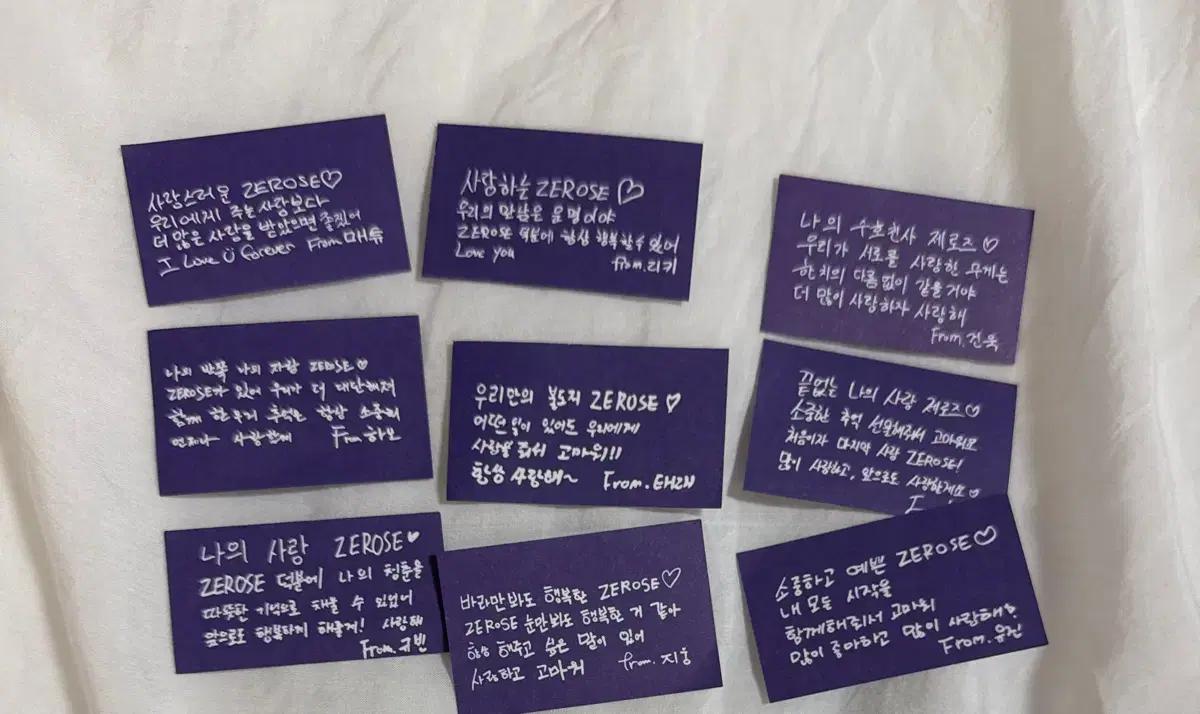 사랑스러운 ZEROSE♡
우리에게 주는 사랑보다
더 많은 사랑을 받았으면 좋겠어
I Love U forever From 매튜
사랑하는 ZEROSE ♡
우리의 만남은 운명이야
ZEROSE 덕분에 항상 행복할 수 있어
Love you from.리키
나의 수호천사 제로즈♡
우리가 서로를 사랑한 무게는
한 치의 다름없이 같을거야
더 많이 사랑하자 사랑해
From.건욱
나의 반쪽 나의 자랑 ZEROSE♡
ZEROSE가 있어 우리가 더 대단해져
함께 한 우리 추억은 항상 소중해
언제나 사랑한다 From 하오
우리만의 봉도지 ZEROSE ♡
어떤 일이 있어도 우리에게
사랑을 줘서 고마워!!
항상 사랑해~ From.태래
끝없는 나의 사랑 제로즈♡
소중한 추억 선물해줘서 고마워요
처음이자 마지막 사랑 ZEROSE!
많이 사랑하고, 앞으로도 사랑할게요♡
나의 사랑 ZEROSE♥
ZEROSE 덕분에 나의 청춘을
따뜻한 기억으로 채울 수 있었어
앞으로도 행복하게 해줄게! 사랑해
From.규빈
바라만봐도 행복한 ZEROSE♡
ZEROSE 눈만봐도 행복한 거 같아
항상 해주고 싶은 말이 있어
사랑하고 고마워 from.지웅
소중하고 예쁜 ZEROSE♡
내 모든 시작을
함께해줘서 고마워
많이 좋아하고 많이 사랑해?
From.유진